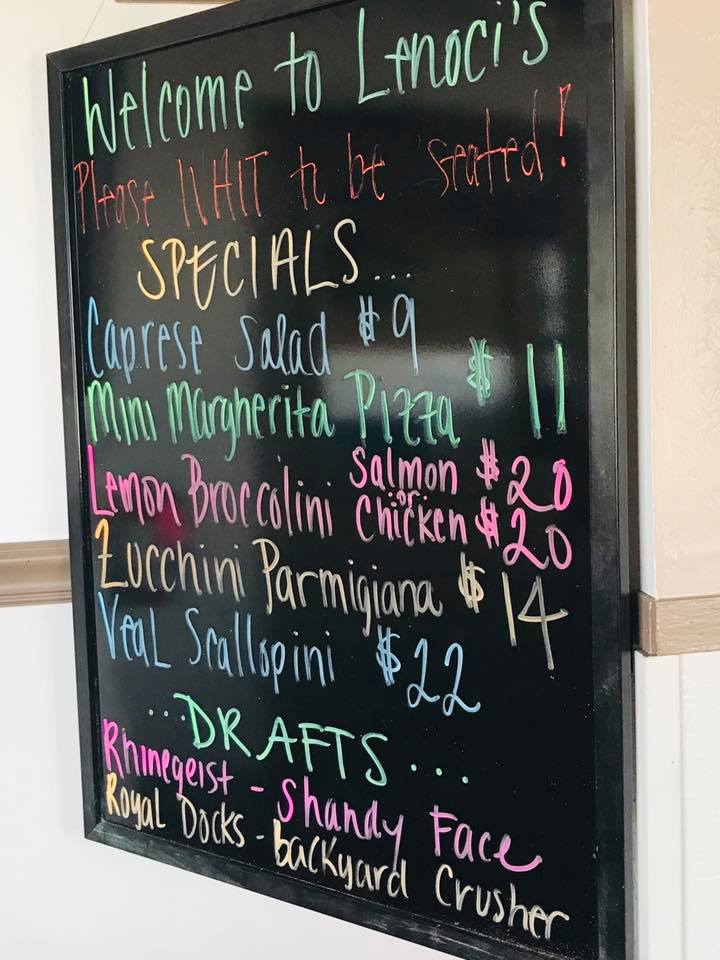 Welcome to Lenoci's
Please WAIT to be seated!
SPECIALS...
Caprese Salad $9
Mini Margherita Pizza $11
Lemon Broccolini Salmon $20
or
Chicken $20
Zucchini Parmigiana $14
Veal Scallopini $22
...DRAFTS...
Rhinegeist - Shandy Face
Royal Docks - backyard Crusher